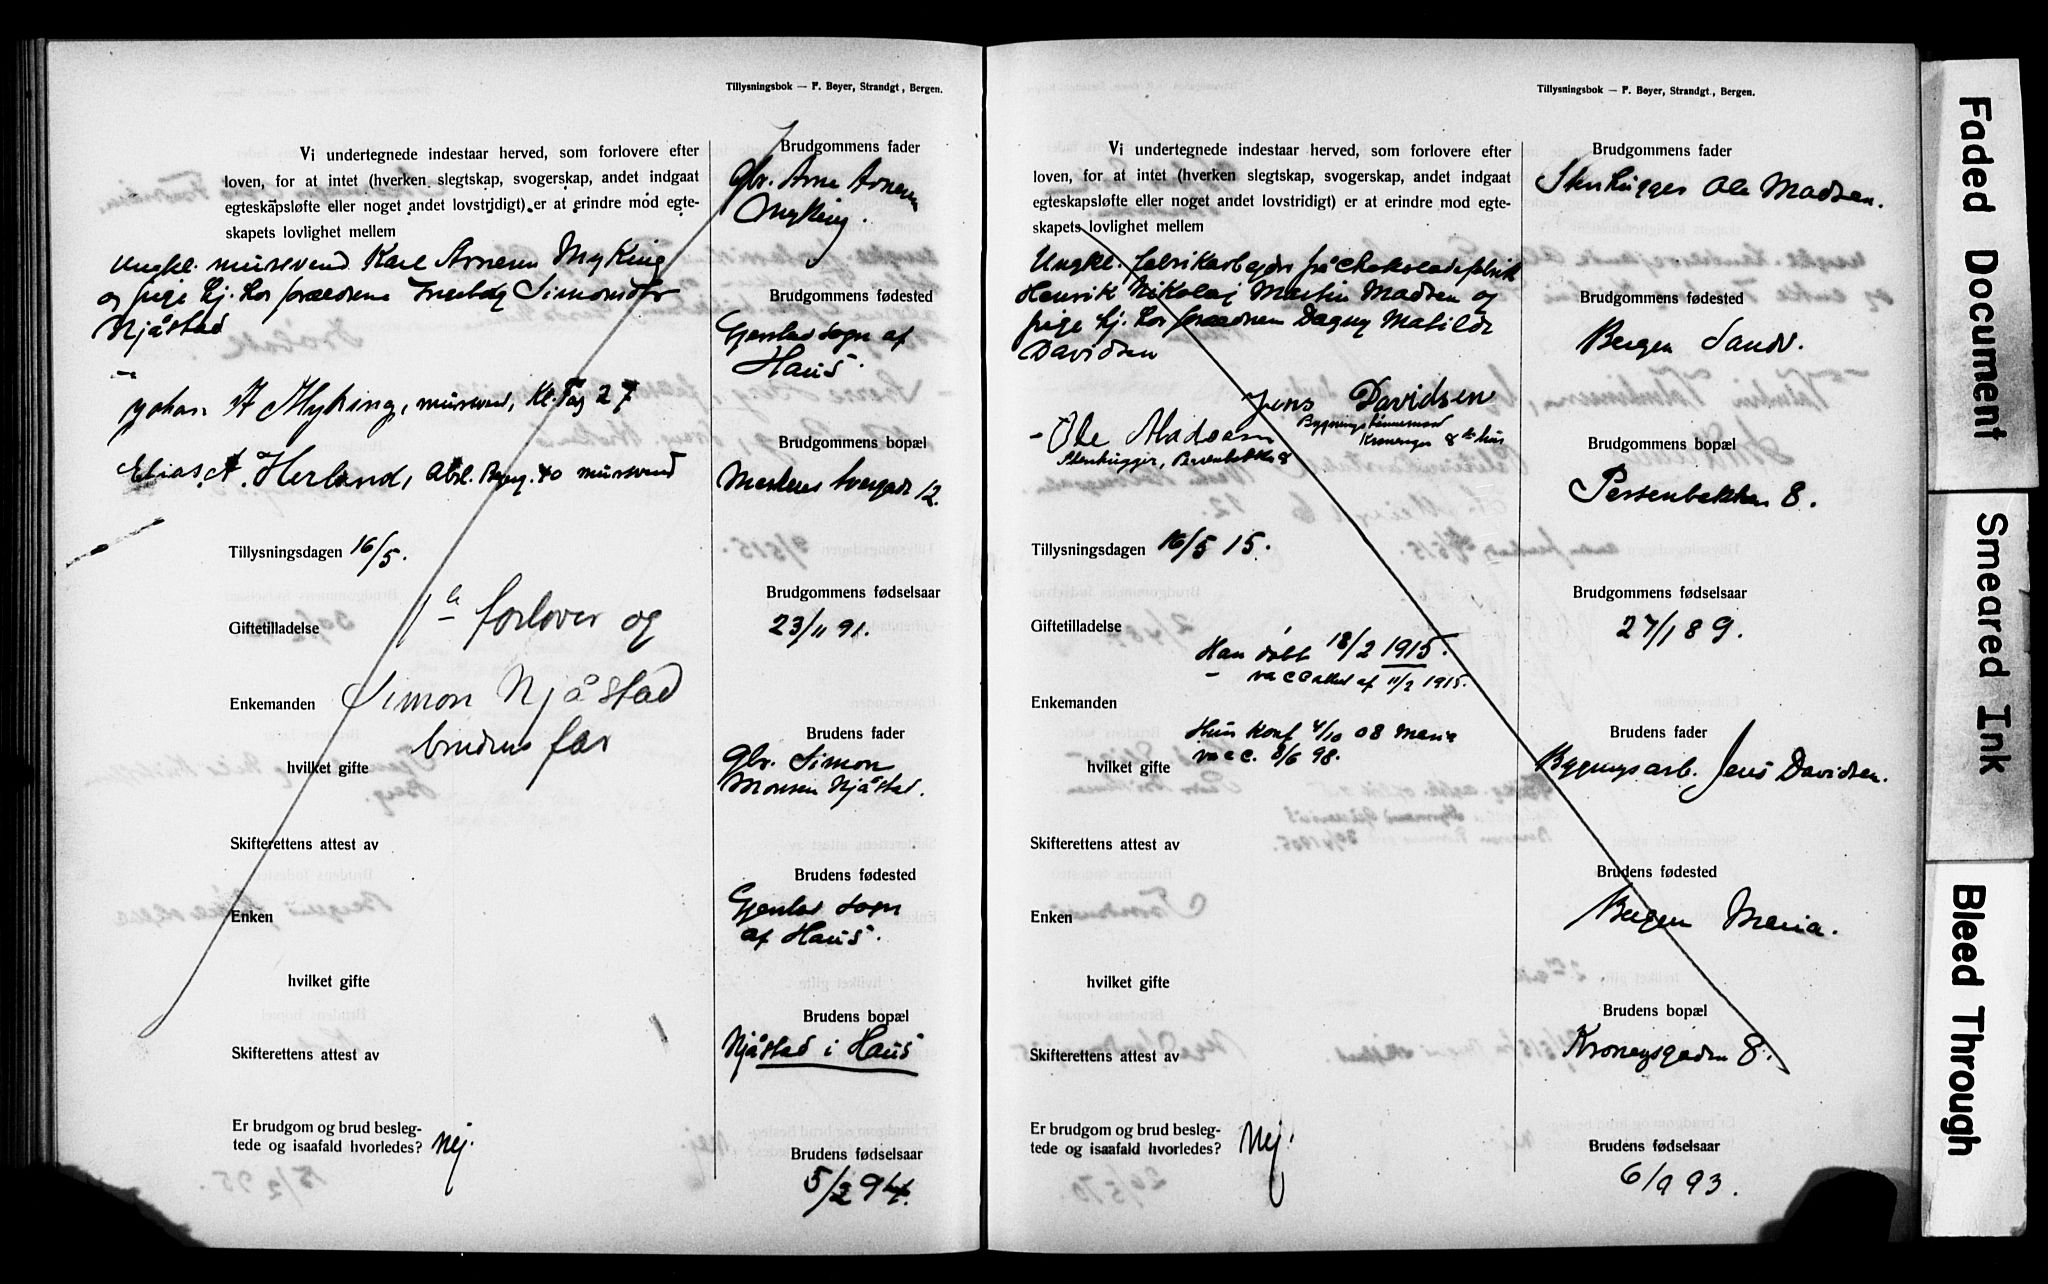 Tillysningsbok — F. Beyer, Strandgt., Bergen.
Vi undertegnede indestaar herved, som forlovere efter
loven, for at intet (hverken slegtskap, svogerskap, andet indgaat
egteskapsløfte eller noget andet lovstridigt) er at erindre mod egte-
skapets lovlighet mellem
Ungkl. mursvend Karl Arnesen Myking
og pige hj. hos forældrene Simonsdtr
Njåstad
Johan A Myking, mursvend, 27
Elias A. Herland, 40 mursvend
Tillysningsdagen 16/5.
Giftetilladelse
1ste forlover og
Enkemanden
Simon Njåstad
brudens far
hvilket gifte
Skifterettens attest av
Enken
hvilket gifte
Skifterettens attest av
Er brudgom og brud besleg-
tede og isaafald hvorledes? Nej.
Brudgommens fader
Gbr. Arne Arnesen
Myking
Brudgommens fødested
Gjerstad sogn af
Haus.
Brudgommens bopæl
12.
Brudgommens fødselsaar
23/11 91.
Brudens fader
Gbr. Simon
Monsen Njåstad.
Brudens fødested
Gjerstad sogn
af Haus.
Brudens bopæl
Njåstad i Haus
Brudens fødselsaar
5/2 94.
Tillysningsbok — F. Beyer, Strandgt., Bergen.
Vi undertegnede indestaar herved, som forlovere efter
loven, for at intet (hverken slegtskap, svogerskap, andet indgaat
egteskapsløfte eller noget andet lovstridigt) er at erindre mod egte-
skapets lovlighet mellem
Ungkl. fabrikarbejder på chokoladefabrik
Henrik Nikolaj Martin Madsen og
pige hj. hos forældrene Dagny Matilde
Davidsen
Jens Davidsen
Ole Madsen
Stenhugger,
Tillysningsdagen 16/5 15.
Giftetilladelse
Han døbt 18/2 1915.
— vacc attest af 11/2 1915.
Enkemanden
Hun konf 4/10 08 Maria
vacc. 8/6 98.
hvilket gifte
Skifterettens attest av
Enken
hvilket gifte
Skifterettens attest av
Er brudgom og brud besleg-
tede og isaafald hvorledes? Nej.
Brudgommens fader
Stenhugger Ole Madsen.
Brudgommens fødested
Bergen Sandv.
Brudgommens bopæl
Persenbakken 8.
Brudgommens fødselsaar
27/1 89.
Brudens fader
Bygningsarb. Jens Davidsen.
Brudens fødested
Bergen Maria.
Brudens bopæl
Kronengsgaden 8.
Brudens fødselsaar
6/9 93.
Faded Document
Smeared Ink
Bleed Through